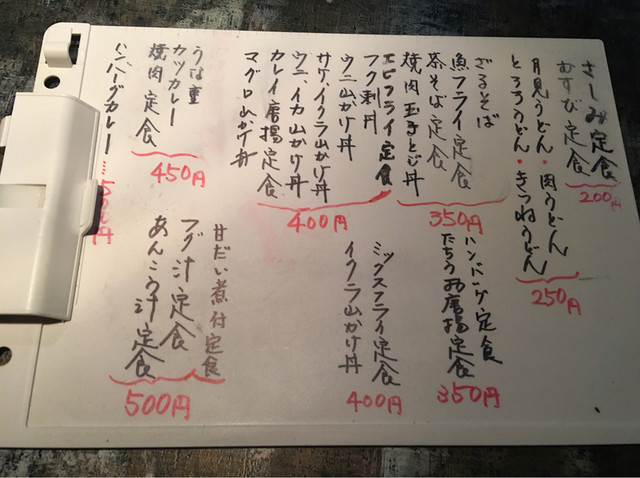 さしみ定食
むすび定食
200円
月見うどん・肉うどん
とろろうどん・きつねうどん
250円
ざるそば
魚フライ定食
茶そば定食
焼肉玉子とじ丼
350円
エビフライ定食
フク刺丼
ウニ山かけ丼
サケ、イクラ山かけ丼
ウニ、イカ山かけ丼
カレイ唐揚定食
マグロ山かけ丼
400円
うな重
カツカレー
焼肉定食
450円
ハンバーグカレー……500円
ハンバーグ定食
たちうお唐揚定食
350円
ミックスフライ定食
イクラ山かけ丼
400円
甘だい煮付定食
フグ汁定食
あんこう汁定食
500円